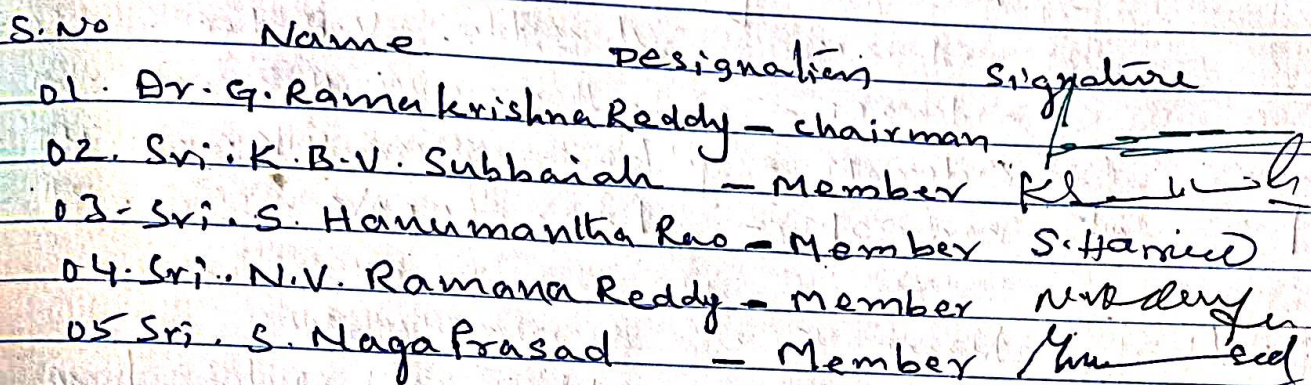 S.No Name Designation Signature
01. Dr. G. Ramakrishna Reddy - chairman
02. Sri. K. B. V. Subbaiah - Member
03 - Sri. S. Hanumantha Rao - Member
04. Sri. N.V. Ramana Reddy - Member
05 Sri. S. Naga Prasad - Member